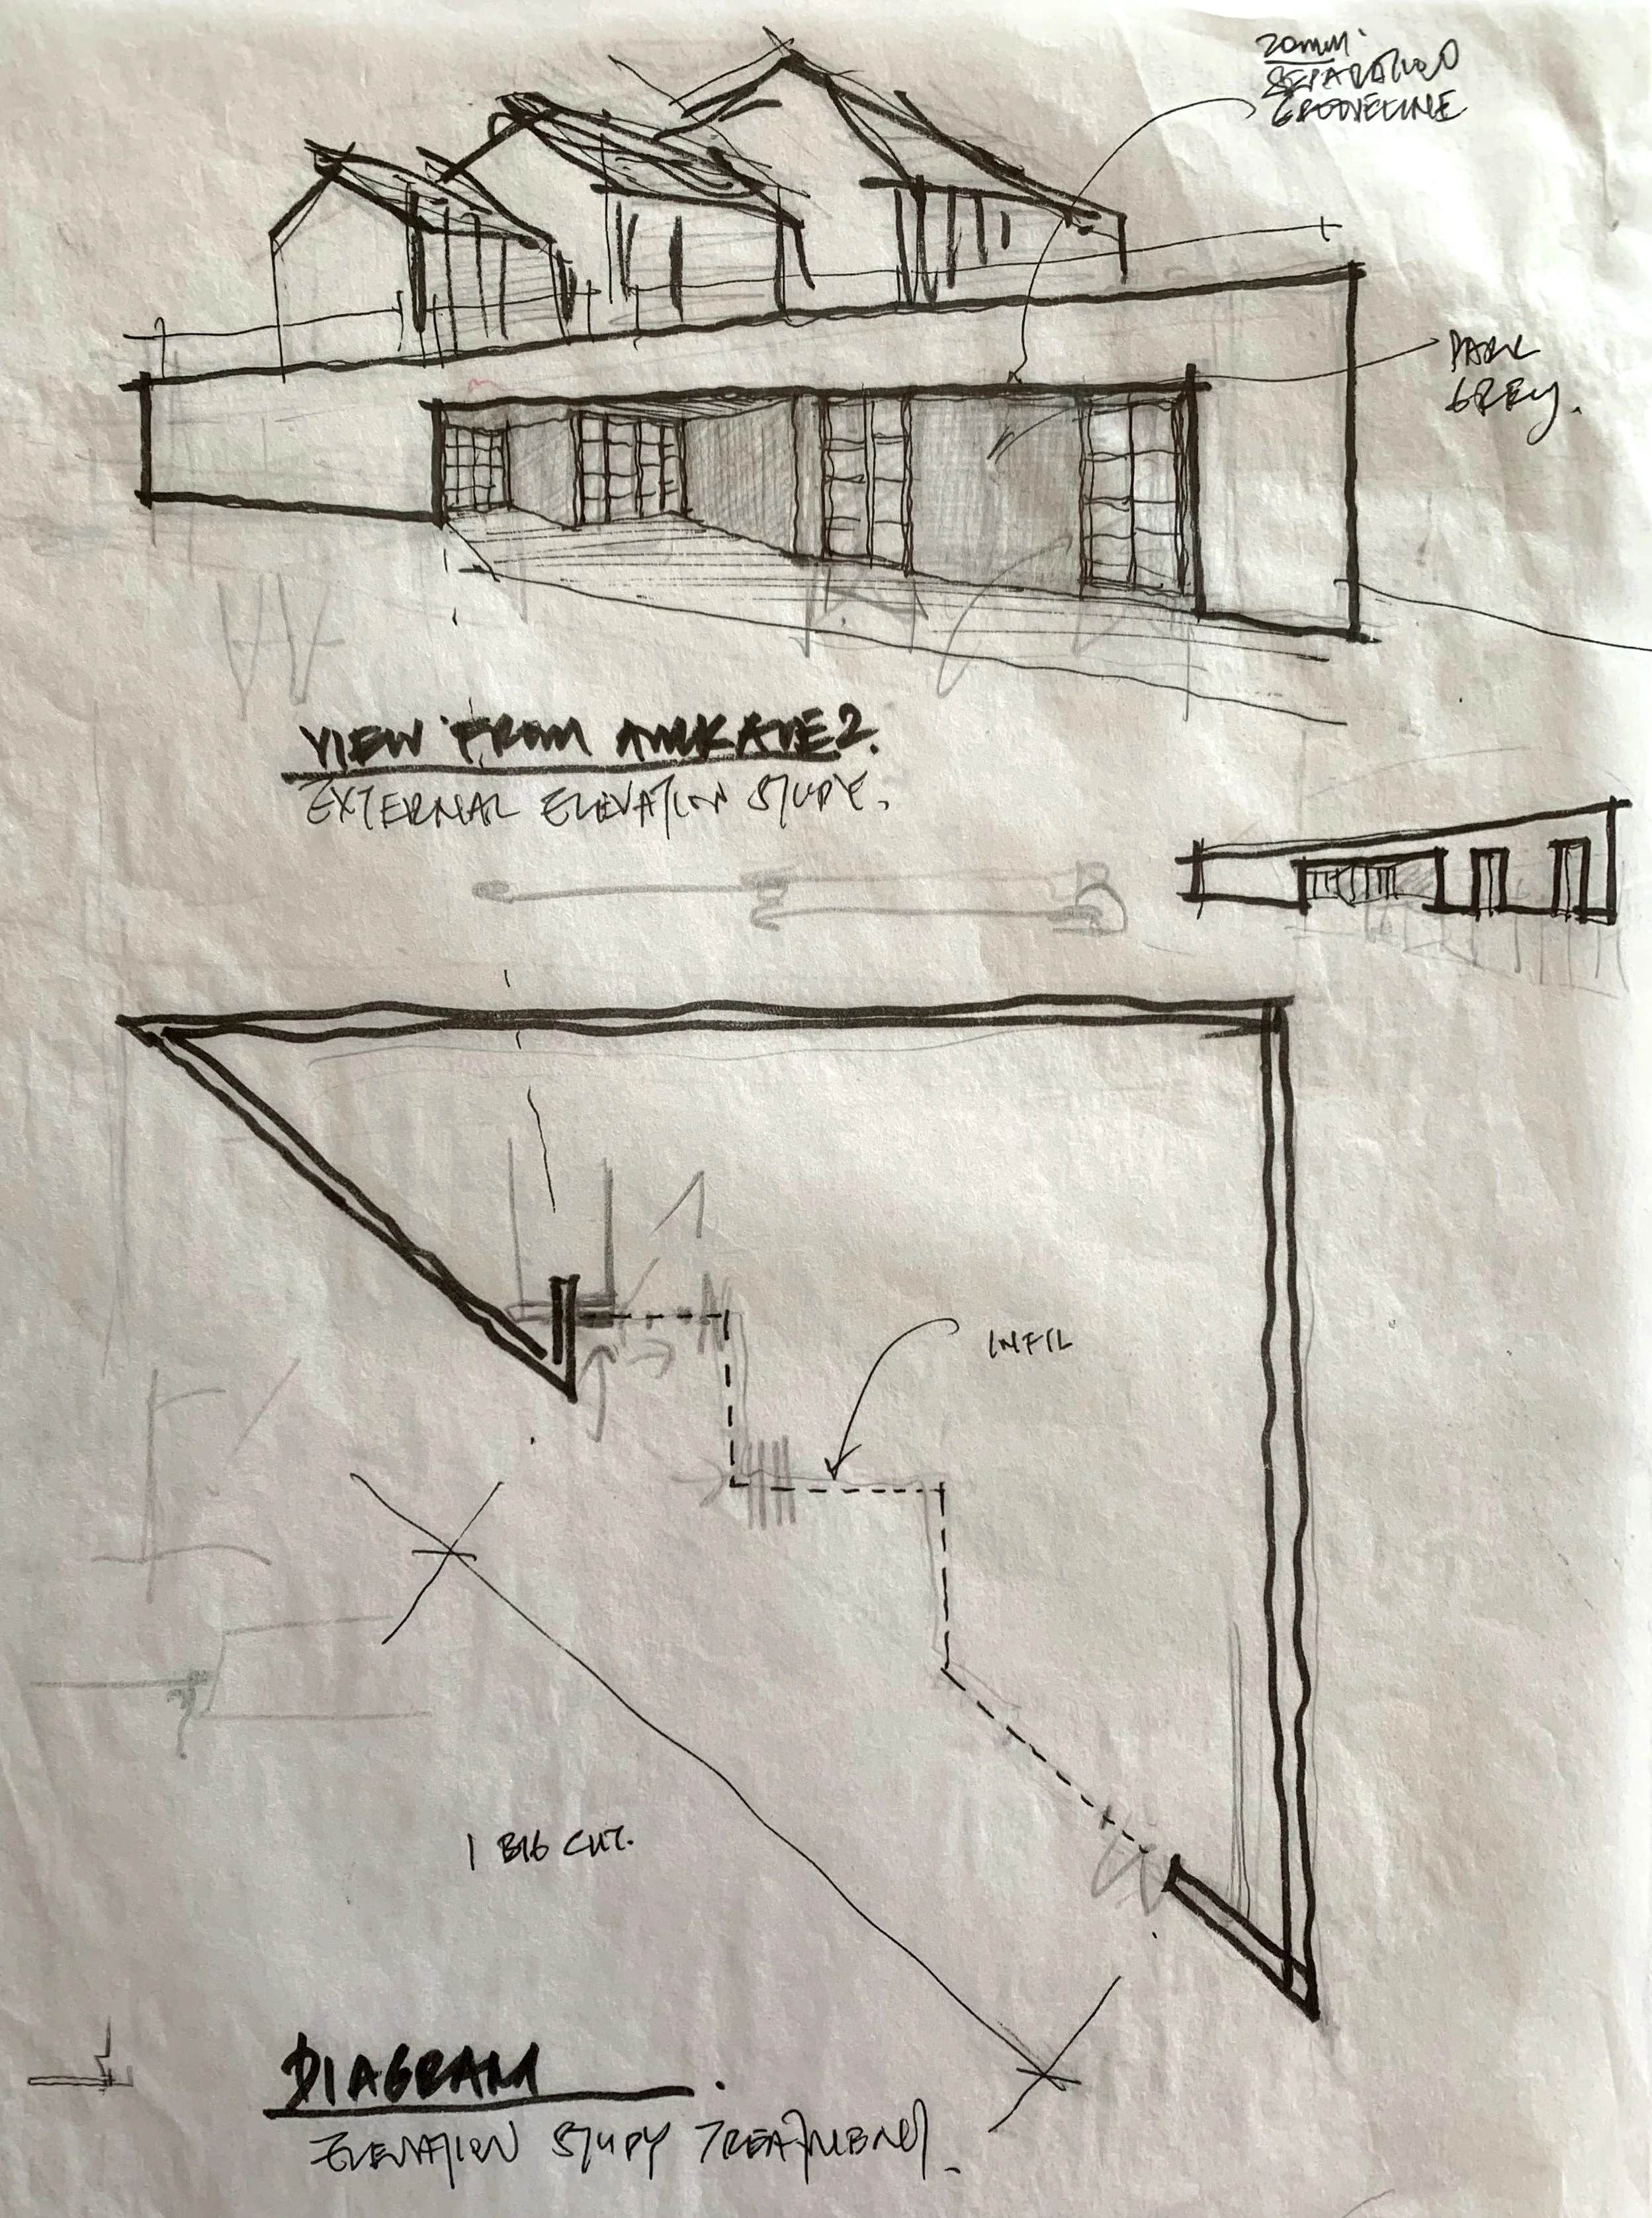 20mm.
SEPARATION
GROOVELINE
DARK
GREY.
VIEW FROM AMK AVE 2.
EXTERNAL ELEVATION STUDY.
INFIL
1 BIG CUT.
DIAGRAM
ELEVATION STUDY TREATMENT.